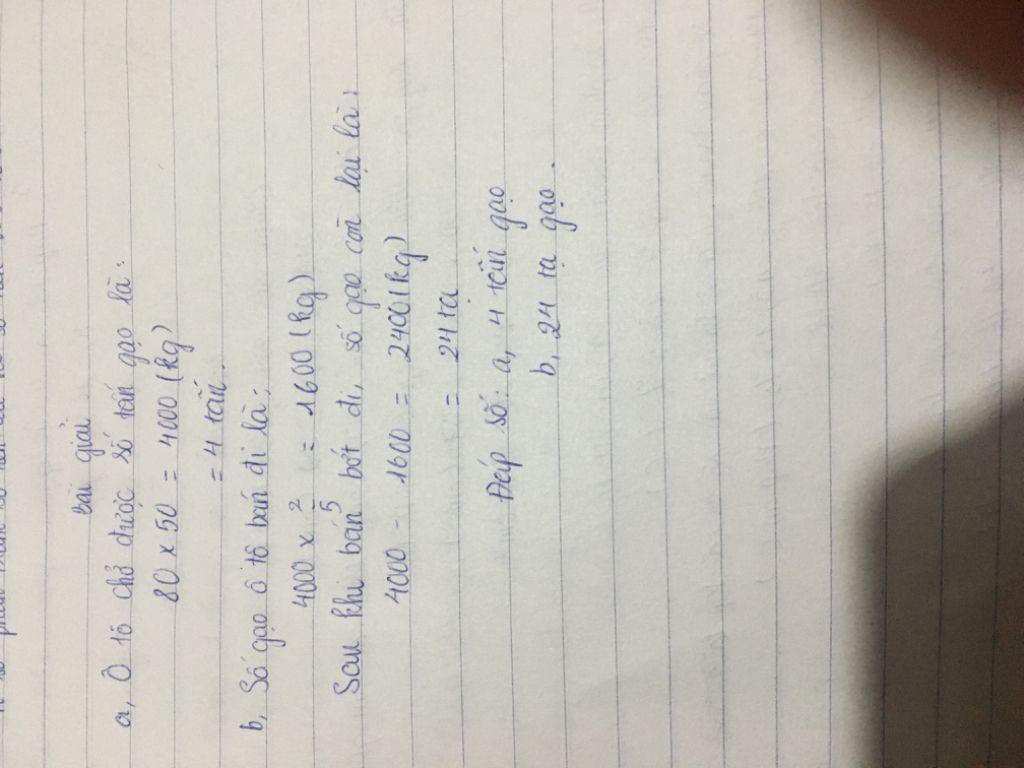 Bài giải
a, Ô tô chở được số tấn gạo là:
80 x 50 = 4000 (kg)
= 4 tấn.
b, Số gạo ô tô bán đi là:
4000 x 2/5 = 1600 (kg)
Sau khi bán bớt đi, số gạo còn lại là:
4000 - 1600 = 2400 (kg)
= 24 tạ
Đáp số: a, 4 tấn gạo
b, 24 tạ gạo.